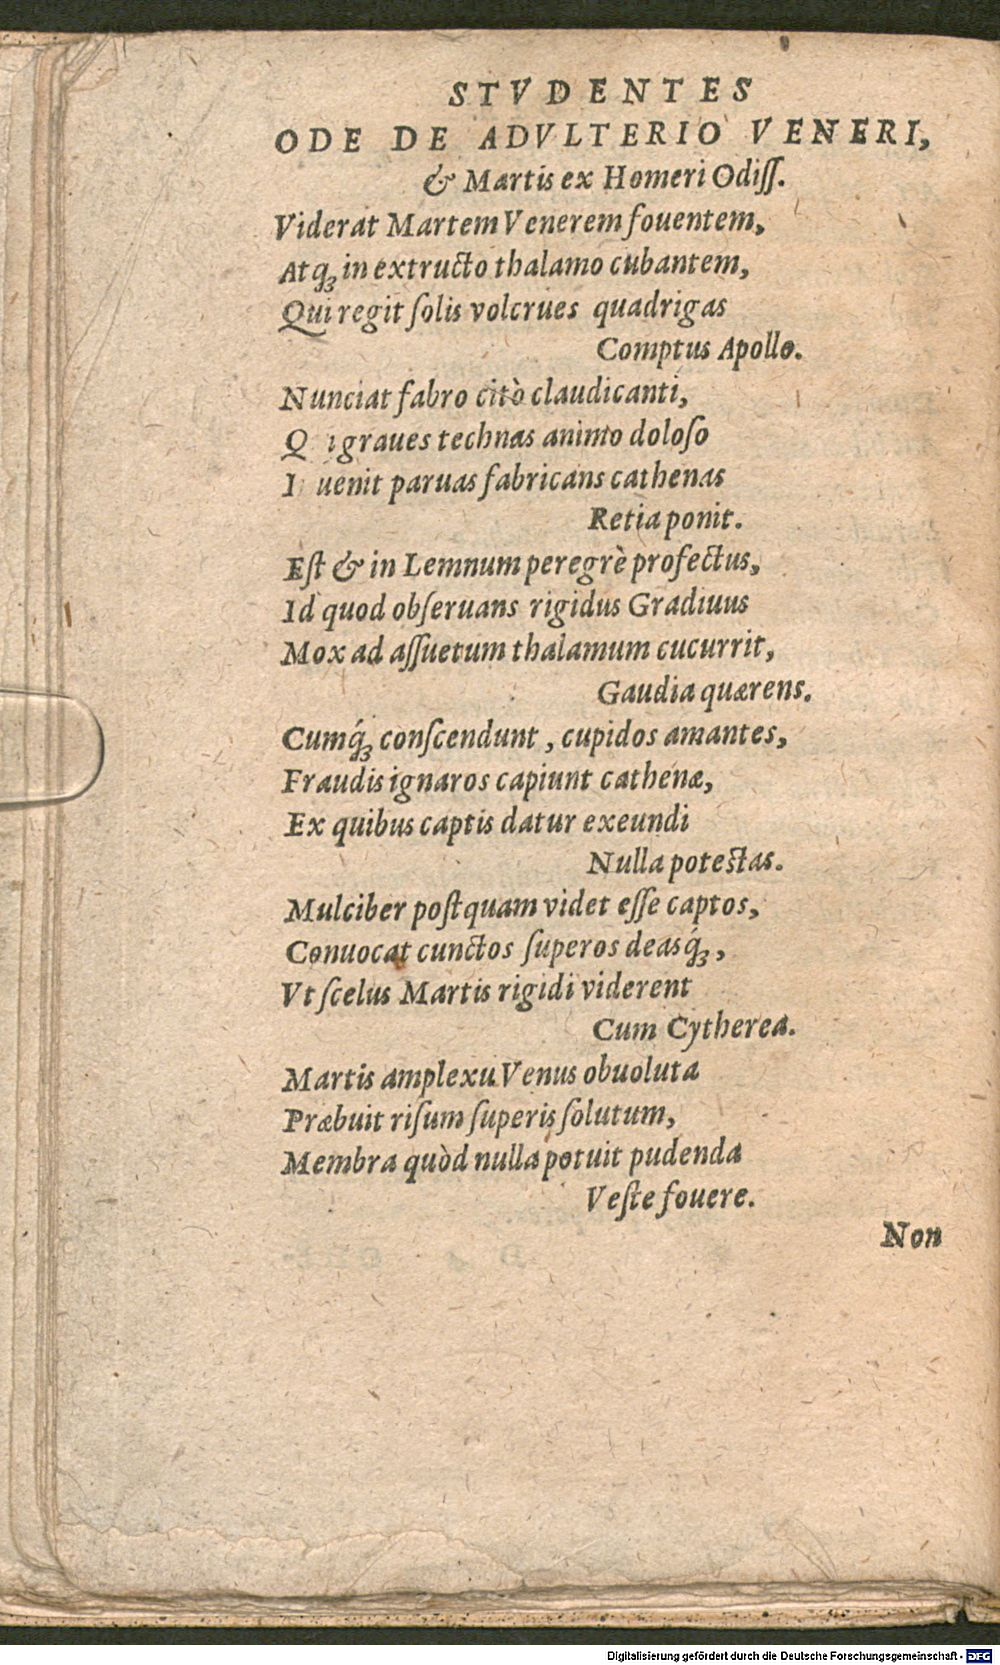 STVDENTES
ODE DE ADVLTERIO VENERI,
& Martis ex Homeri Odiſſ.
Viderat Martem Venerem fouentem,
Atq́ꝫ in extructo thalamo cubantem,
Qui regit ſolis volcrues quadrigas
Comptus Apollo.
Nunciat fabro citò claudicanti,
Q i graues technas animo doloſo
I uenit paruas fabricans cathenas
Retia ponit.
Eſt & in Lemnum peregrè profectus,
Id quod obſeruans rigidus Gradiuus
Mox ad aſſuetum thalamum cucurrit,
Gaudia quærens.
Cumq́ꝫ conſcendunt, cupidos amantes,
Fraudis ignaros capiunt cathenæ,
Ex quibus captis datur exeundi
Nulla poteſtas.
Mulciber poſtquam videt eſſe captos,
Conuocat cunctos ſuperos deasq́ꝫ,
Vt ſcelus Martis rigidi viderent
Cum Cytherea.
Martis amplexu Venus obuoluta
Præbuit riſum ſuperis ſolutum,
Membra quòd nulla potuit pudenda
Veſte fouere.
Non
Digitalisierung gefördert durch die Deutsche Forschungsgemeinschaft - DFG